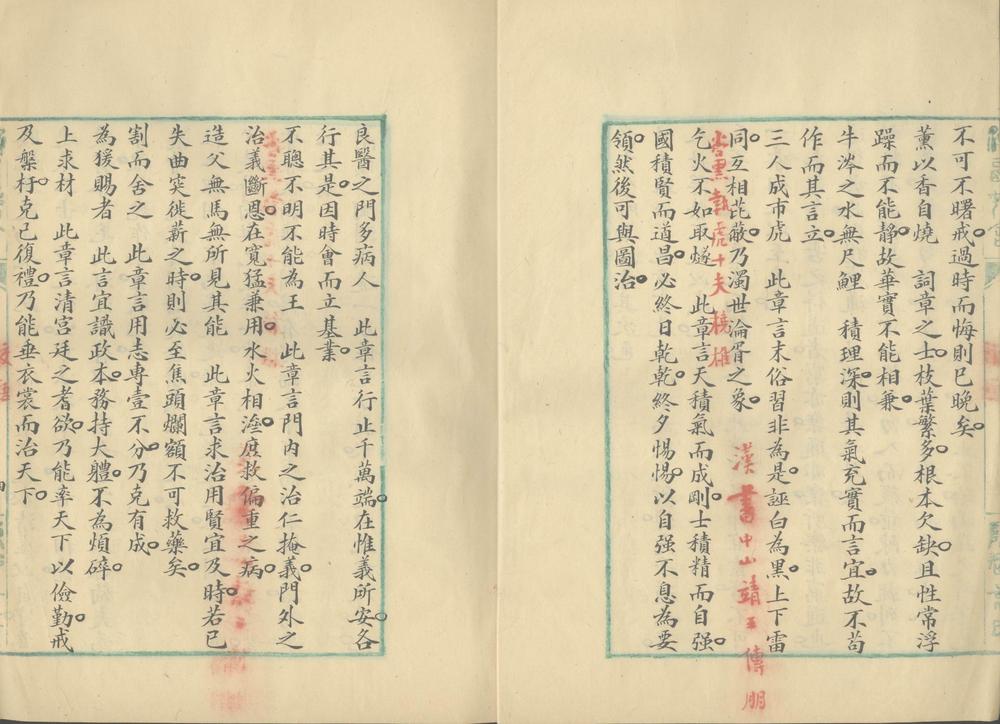 不可不曙戒。過時而悔則已晚矣。
薰以香自燒　詞章之士。枝葉繁多。根本欠缺。且性常浮
躁而不能靜。故華實不能相兼。
牛涔之水無尺鯉　積理深則其氣充實而言宜。故不苟
作而其言立。
三人成市虎　此章言末俗習非為是。誣白為黑。上下雷
同。互相芘蔽。乃濁世淪胥之象。
乞火不如取燧　此章言天積氣而成剛。士積精而自强。
國積賢而道昌。必終日乾乾。終夕惕惕。以自强不息為要
領。然後可與圖治。
漢書中山靖王傳朋
十夫橈椎
良醫之門多病人　此章言行止千萬端。在惟義所安。各
行其是。因時會而立基業。
不聰不明不能為王　此章言門內之治仁掩義。門外之
治義斷恩。在寬猛兼用。水火相濟。庶救偏重之病。
造父無馬無所見其能　此章言求治用賢宜及時。若已
失曲突徙薪之時。則必至焦頭爛額不可救藥矣。
割而舍之　此章言用志專壹不分。乃克有成。
為猨賜者　此言宜識政本。務持大體。不為煩碎。
上求材　此章言清宮廷之耆欲。乃能率天下以儉勤。戒
及槃杅。克已復禮。乃能垂衣裳而治天下。